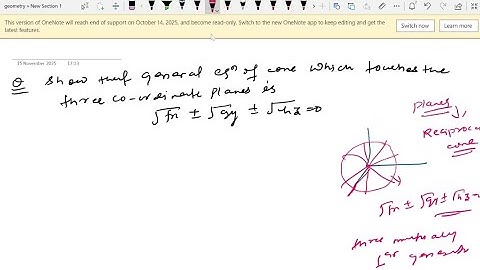 geometry » New Section 1
This version of OneNote will reach end of support on October 14, 2025, and become read-only. Switch to the new OneNote app to keep editing and get the latest features.
Switch now
Learn more
15 November 2025 17:13
Q Show that general eqn of cone which touches the
three co-ordinate planes is
√fx ± √gy ± √hz = 0
planes,
Reciprocal
cone
√fx ± √gy ± √hz =
three mutually
⊥ar generators